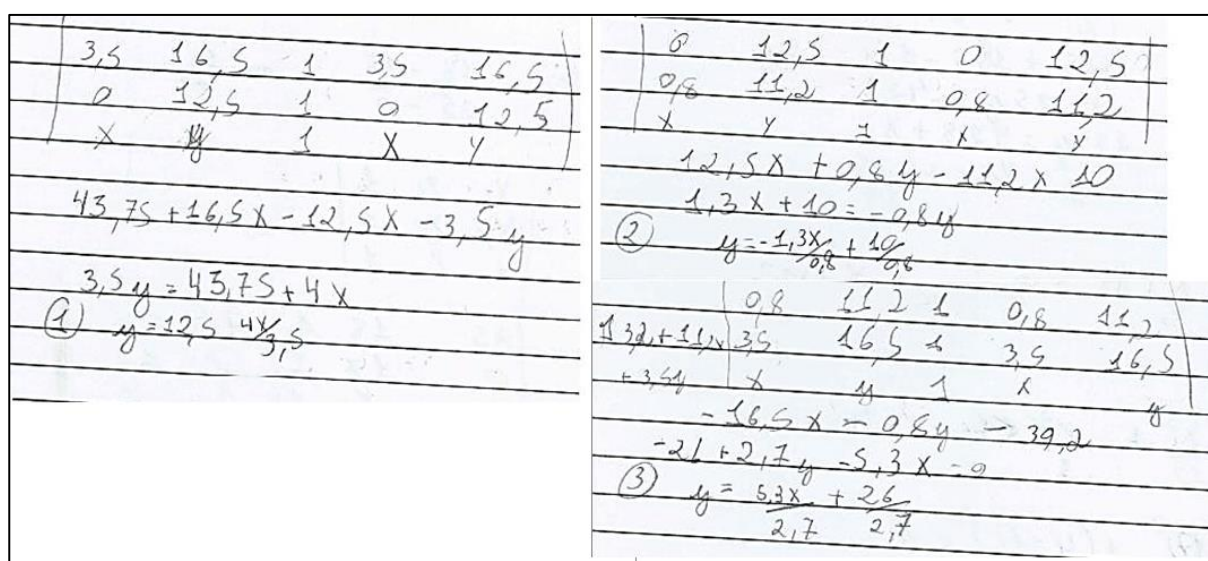 3,5 16,5 1 3,5 16,5
0 12,5 1 0 12,5
x y 1 x y
43,75 + 16,5x - 12,5x - 3,5y
3,5y = 43,75 + 4x
① y = 12,5 4x/3,5
0 12,5 1 0 12,5
0,8 11,2 1 0,8 11,2
x y 1 x y
12,5x + 0,8y - 11,2x 10
1,3x + 10 = -0,8y
② y = -1,3x/0,8 + 10/0,8
0,8 11,2 1 0,8 11,2
13,2 + 11,2x 3,5 16,5 1 3,5 16,5
+ 3,5y x y 1 x y
- 16,5x - 0,8y - 39,2
-26 + 2,7y - 5,3x = 0
③ y = 5,3x/2,7 + 26/2,7